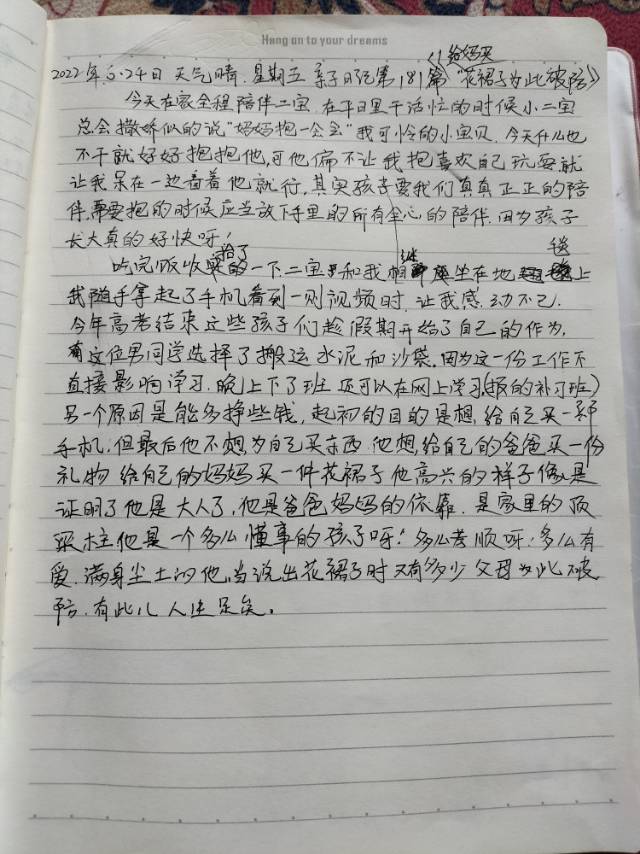 Hang on to your dreams
《给妈买
2022年6.24日 天气晴.星期五 亲子日记第181篇"花裙子为此破防》
今天在家全程陪伴二宝.在平日里干活忙的时候小二宝
总会撒娇似的说"妈妈抱一会全"我可怜的小宝贝.今天什么也
不干就好好抱抱他,可他偏不让我抱喜欢自己玩耍就
让我呆在一边看着他就行.其实孩子要我们真真正正的陪
伴.需要抱的时候应当放下手里的所有全心的陪伴.因为孩子
长大真的好快呀!
吃完饭收拾了一下二宝和我相继坐在地毯上
我随手拿起了手机看到一则视频时.让我感动不已.
今年高考结束这些孩子们趁假期开始了自己的作为.
有这位男同学选择了搬运水泥和沙袋.因为这一份工作不
直接影响学习.晚上下了班还可以在网上学习(报的补习班)
另一个原因是能多挣些钱,起初的目的是想给自己买一部
手机.但最后他不想为自己买东西.他想给自己的爸爸买一份
礼物 给自己的妈妈买一件花裙子他高兴的样子像是
证明了他是大人了,他是爸爸妈妈的依靠.是家里的顶
梁柱他是一个多么懂事的孩子呀!多么孝顺呀!多么有
爱.满身尘土的他,当说出花裙子时又有多少父母为此破
防.有此儿人生足矣。